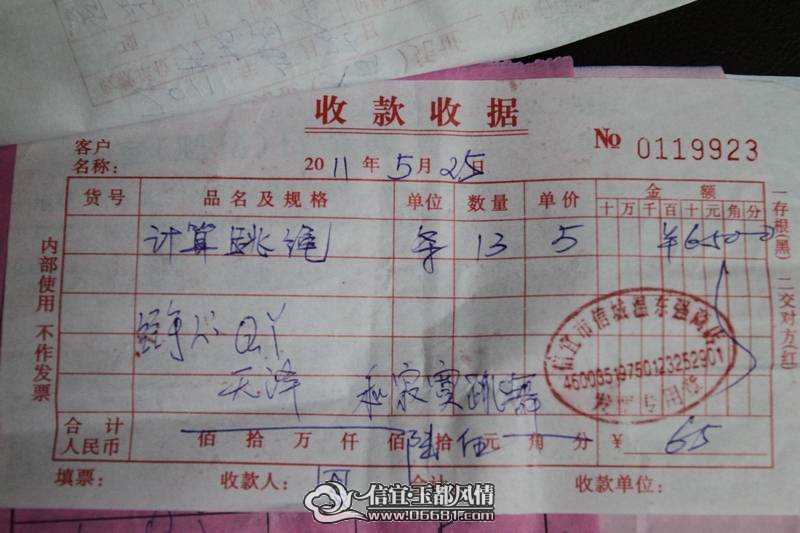 收款收据
客户
名称：
2011年5月25日
No 0119923
货号 品名及规格 单位 数量 单价 金额
十万千百十元角分
计算跳绳 条 13 5 ¥65000
经手人 QIY
天泽 和寂寞跳舞
信宜市信城温东强商店
46008519750123252901
发票专用章
合计
人民币
佰拾万仟佰陆拾伍元角分 ¥ 65
填票： 收款人： 合计 收款单位：
内部使用 不作发票
一存根(黑) 二交对方(红)
信宜玉都风情
www.06681.com